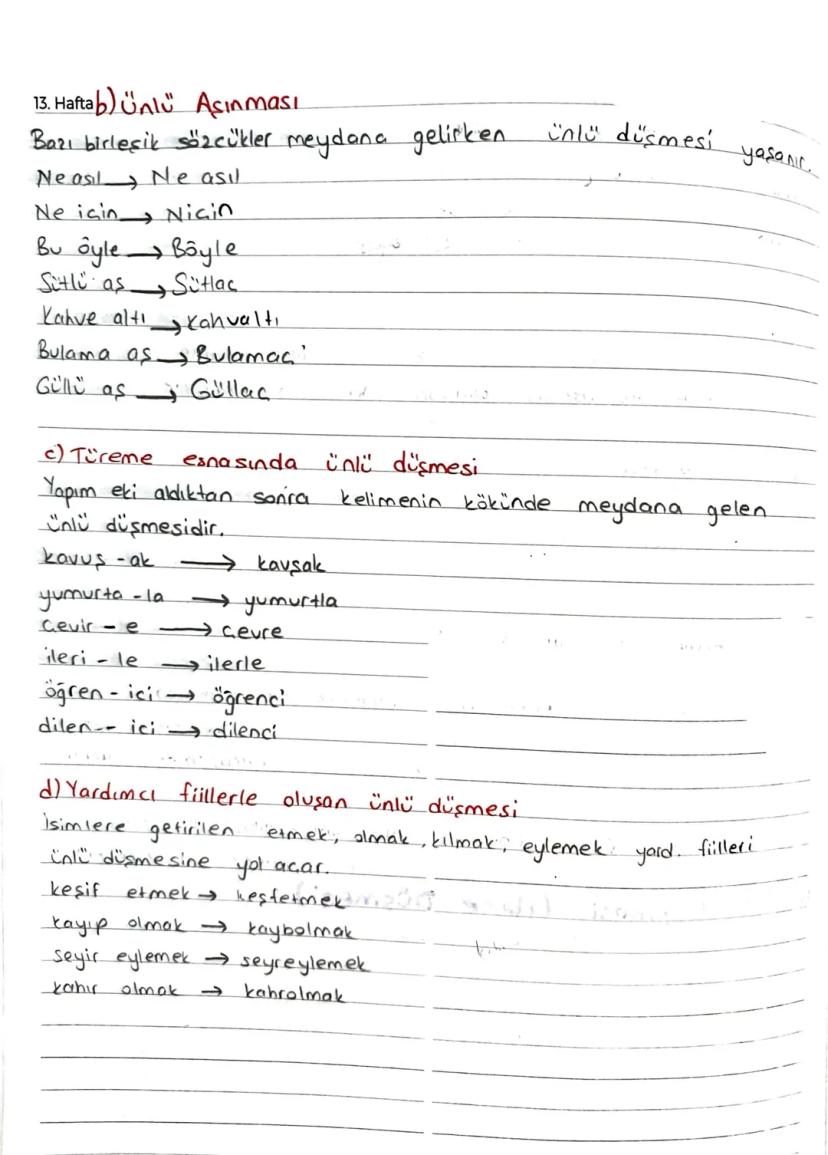 13. Hafta b) Ünlü Aşınması
Bazı birleşik sözcükler meydana gelirken ünlü düşmesi yaşanır.
Ne asıl → Ne asıl
Ne için → Niçin
Bu öyle → Böyle
Sütlü aş → Sütlaç
Kahve altı → Kahvaltı
Bulama aş → Bulamaç
Güllü aş → Güllaç
c) Türeme esnasında ünlü düşmesi
Yapım eki aldıktan sonra kelimenin kökünde meydana gelen
ünlü düşmesidir.
kavuş -ak → kavşak
yumurta -la → yumurtla
çevir - e → çevre
ileri - le → ilerle
öğren - ici → öğrenci
dilen -- ici → dilenci
d) Yardımcı fiillerle oluşan ünlü düşmesi
İsimlere getirilen etmek, olmak, kılmak, eylemek yard. fiilleri
ünlü düşmesine yol açar.
keşif etmek → keşfetmek
kayıp olmak → kaybolmak
seyir eylemek → seyreylemek
kahır olmak → kahrolmak